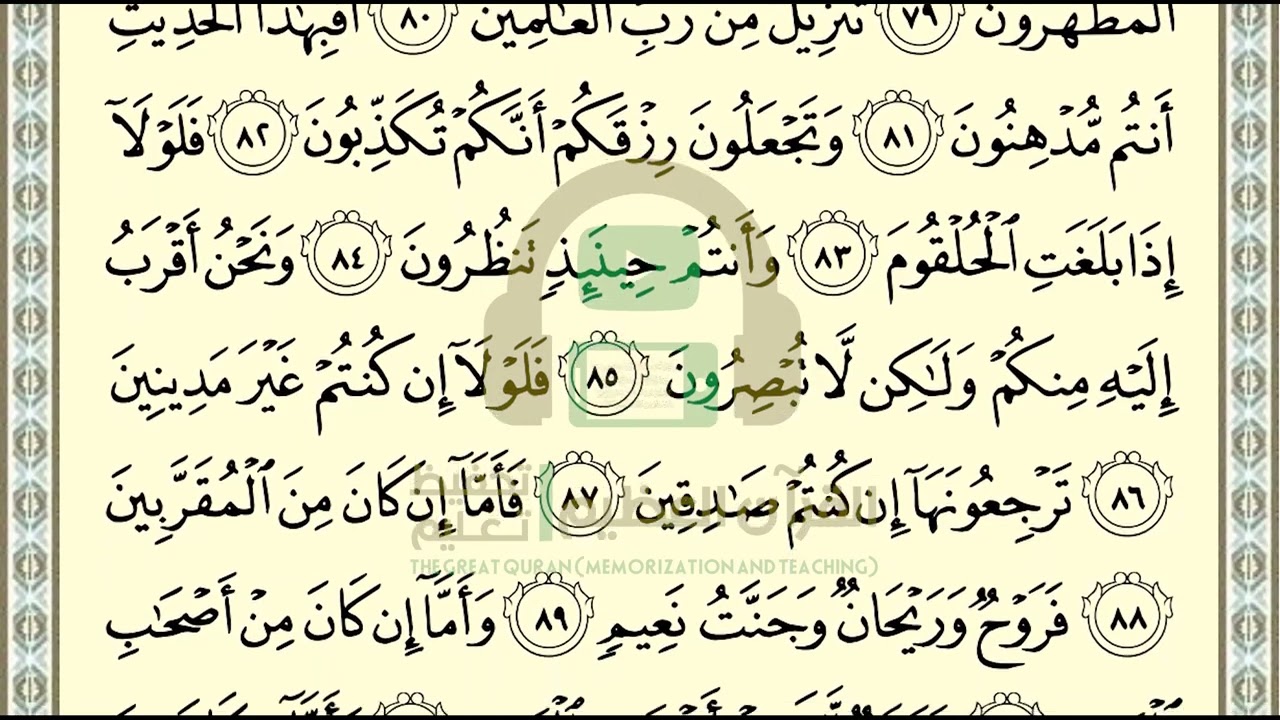 ٱلْمُطَهَّرُونَ ٧٩ تَنزِيلٌ مِّن رَّبِّ ٱلْعَـٰلَمِينَ ٨٠ أَفَبِهَـٰذَا ٱلْحَدِيثِ
أَنتُم مُّدْهِنُونَ ٨١ وَتَجْعَلُونَ رِزْقَكُمْ أَنَّكُمْ تُكَذِّبُونَ ٨٢ فَلَوْلَآ
إِذَا بَلَغَتِ ٱلْحُلْقُومَ ٨٣ وَأَنتُمْ حِينَئِذٍ تَنظُرُونَ ٨٤ وَنَحْنُ أَقْرَبُ
إِلَيْهِ مِنكُمْ وَلَـٰكِن لَّا تُبْصِرُونَ ٨٥ فَلَوْلَآ إِن كُنتُمْ غَيْرَ مَدِينِينَ
٨٦ تَرْجِعُونَهَآ إِن كُنتُمْ صَـٰدِقِينَ ٨٧ فَأَمَّآ إِن كَانَ مِنَ ٱلْمُقَرَّبِينَ
القرآن العظيم | تحفيظ تعليم
THE GREAT QURAN (MEMORIZATION AND TEACHING)
٨٨ فَرَوْحٌ وَرَيْحَانٌ وَجَنَّتُ نَعِيمٍ ٨٩ وَأَمَّآ إِن كَانَ مِنْ أَصْحَـٰبِ